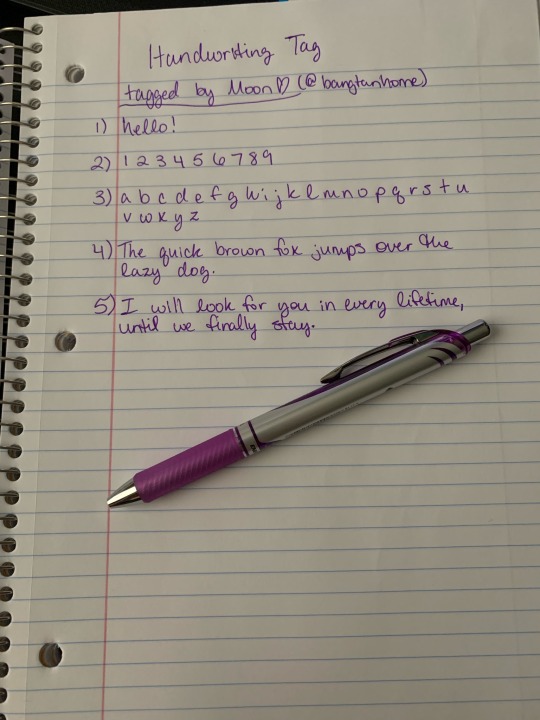 Handwriting Tag
tagged by Moon♡ (@bangtanhome)
1) hello!
2) 1 2 3 4 5 6 7 8 9
3) a b c d e f g h i j k l m n o p q r s t u
v w x y z
4) The quick brown fox jumps over the
lazy dog.
5) I will look for you in every lifetime,
until we finally stay.